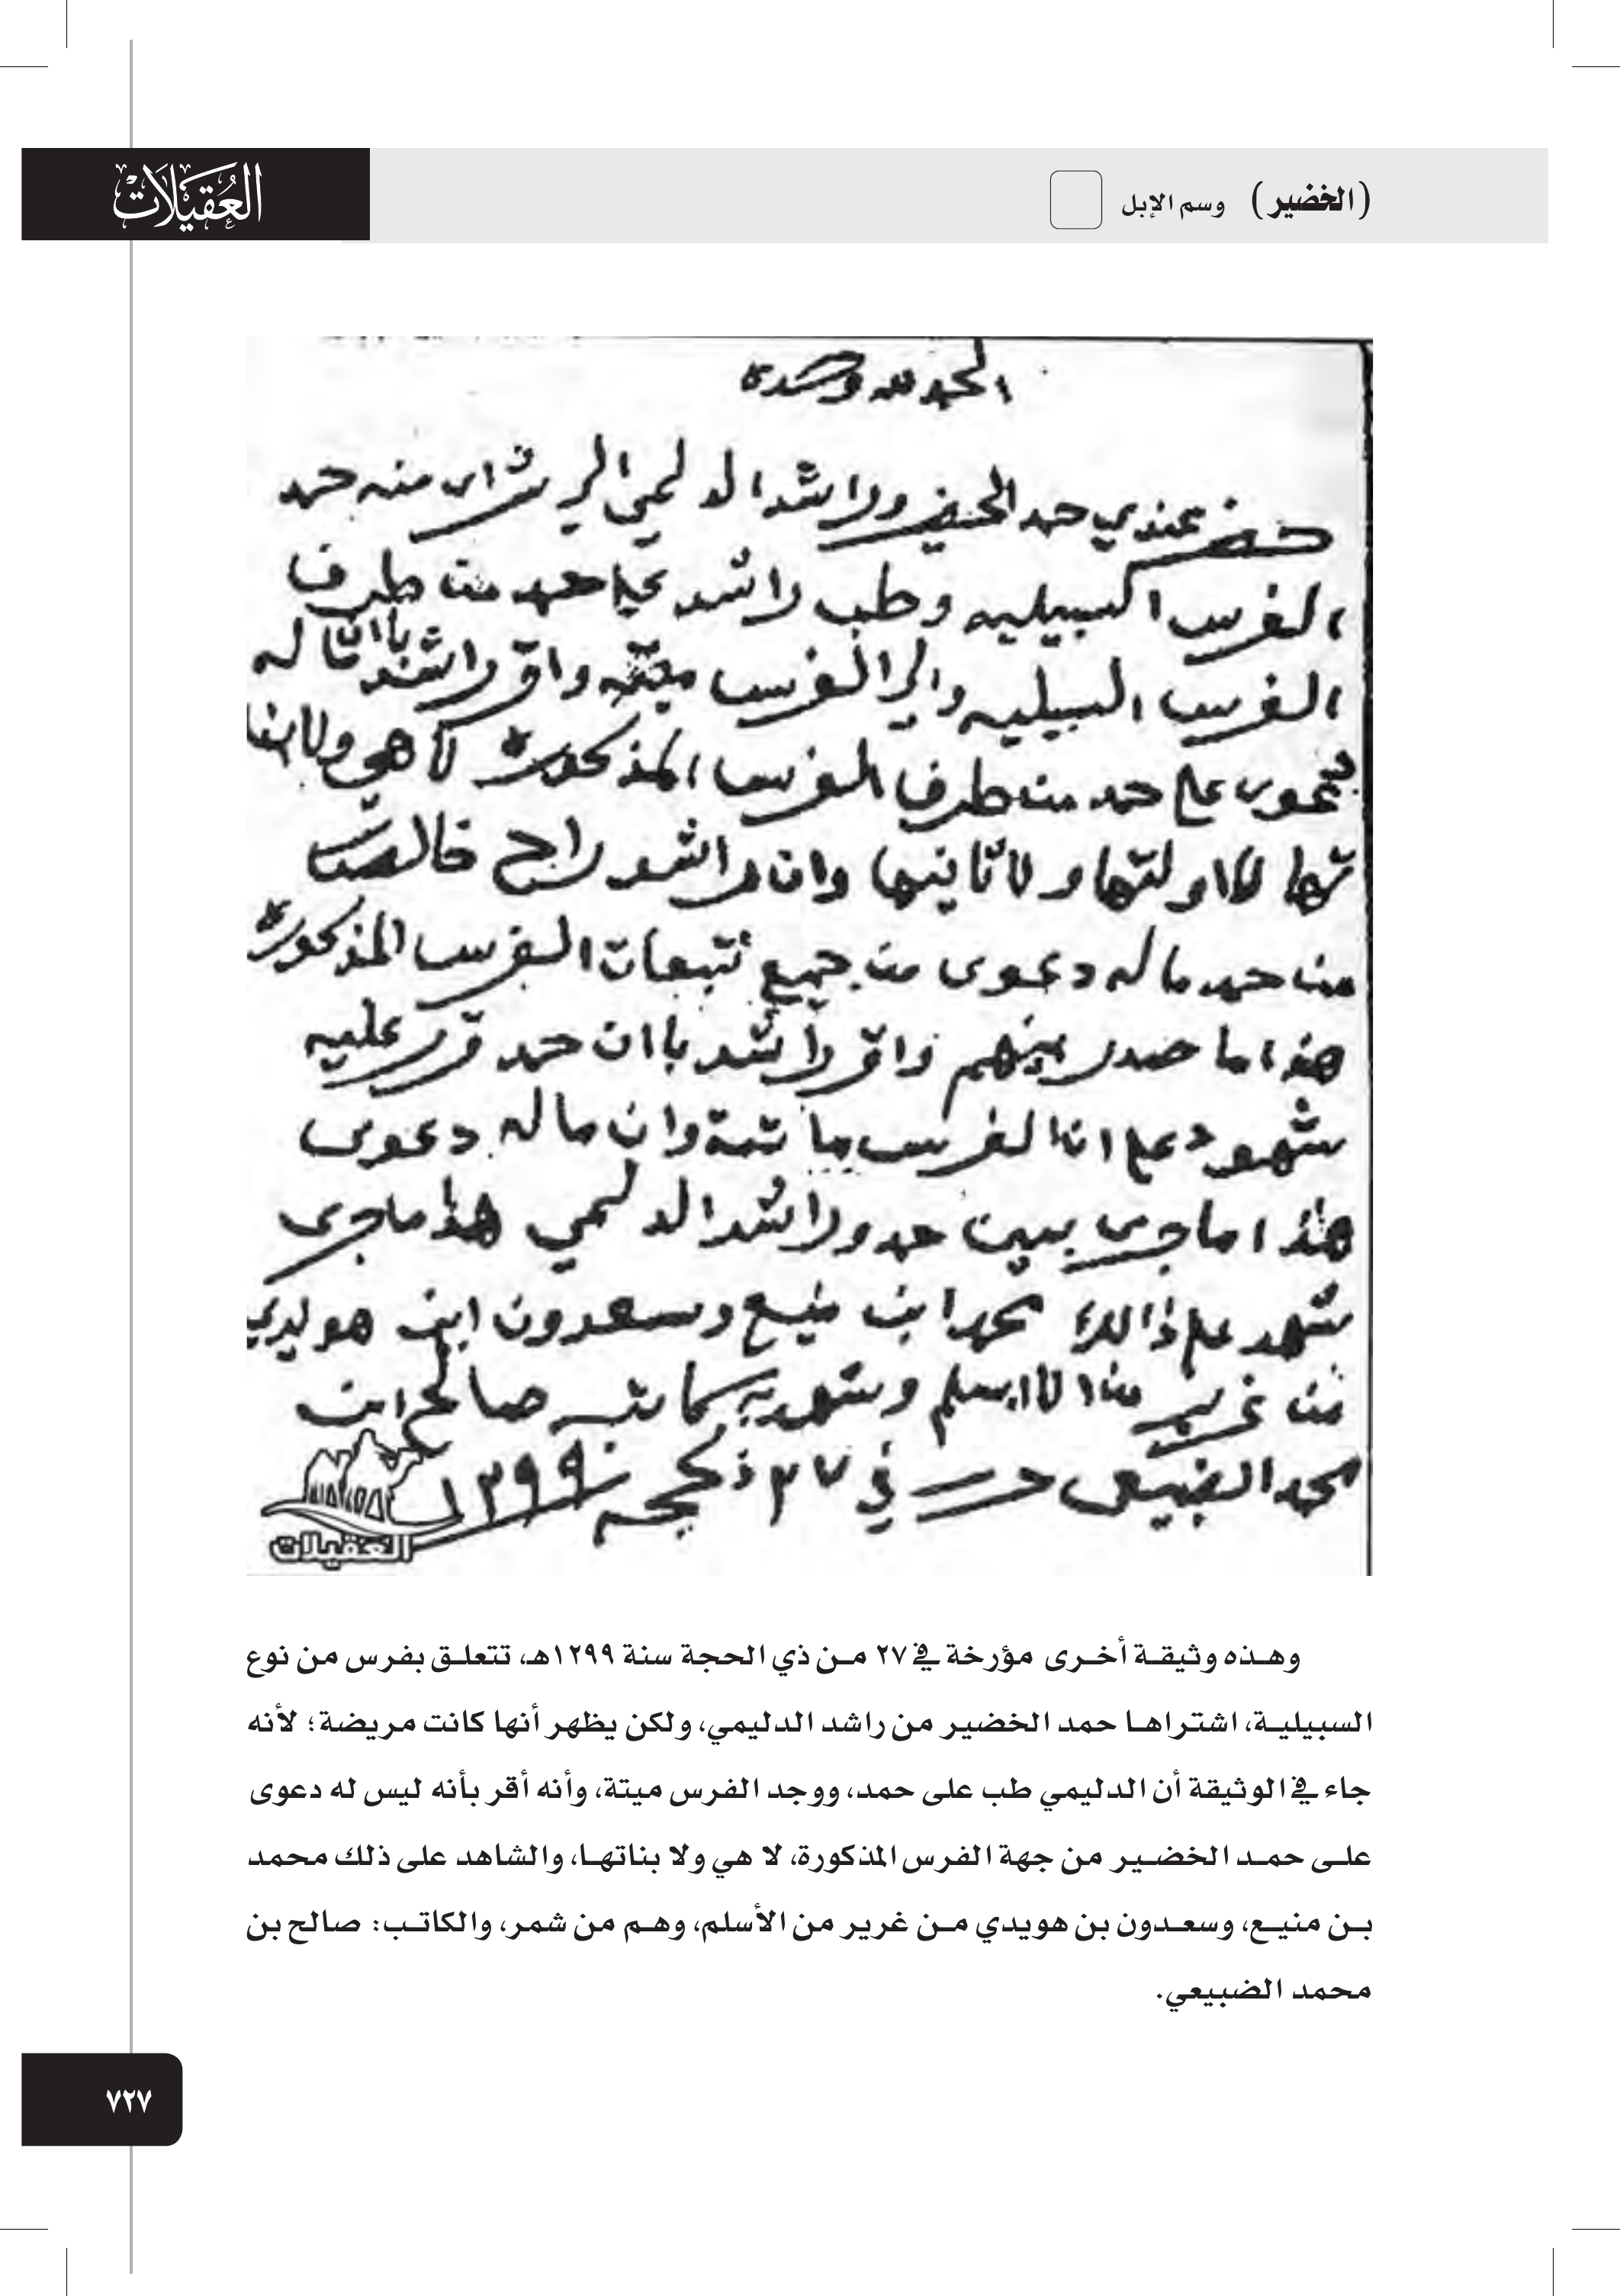 (الخضير) وسم الإبل
العقيلات
الحمد لله وحده
حضر عندي حمد الخضير وراشد الدلمي الى شرا منه حمد
الفرس السبيليه وطب راشد على حمد من طرف
الفرس السبيليه والى الفرس ميته واقر راشد باان ماله
دعوى على حمد من طرف الفرس المذكوره لا هي ولا بنا
تها لا اولتها ولا تانيها وان راشد راح خالص
من حمد ماله دعوى من جميع تبعات الفرس المذكوره
هذا ما صدر بينهم واقر راشد باان حمد قرر عليه
شهود على ان الفرس مايتة وان ماله دعوى
هذا ماجرى بين حمد وراشد الدلمي هذا ماجرى
شهد على ذالك محمد ابن منيع وسعدون ابن هويدي
من غرير من الاسلم وشهد به كاتبه صالح ابن
محمد الضبيعي حرر في ٢٧ ذلحجه ١٢٩٩
العقيلات
وهذه وثيقة أخرى مؤرخة في ٢٧ من ذي الحجة سنة ١٢٩٩هـ، تتعلق بفرس من نوع
السبيلية، اشتراها حمد الخضير من راشد الدليمي، ولكن يظهر أنها كانت مريضة؛ لأنه
جاء في الوثيقة أن الدليمي طب على حمد، ووجد الفرس ميتة، وأنه أقر بأنه ليس له دعوى
على حمد الخضير من جهة الفرس المذكورة، لا هي ولا بناتها، والشاهد على ذلك محمد
بن منيع، وسعدون بن هويدي من غرير من الأسلم، وهم من شمر، والكاتب: صالح بن
محمد الضبيعي.
٧٢٧